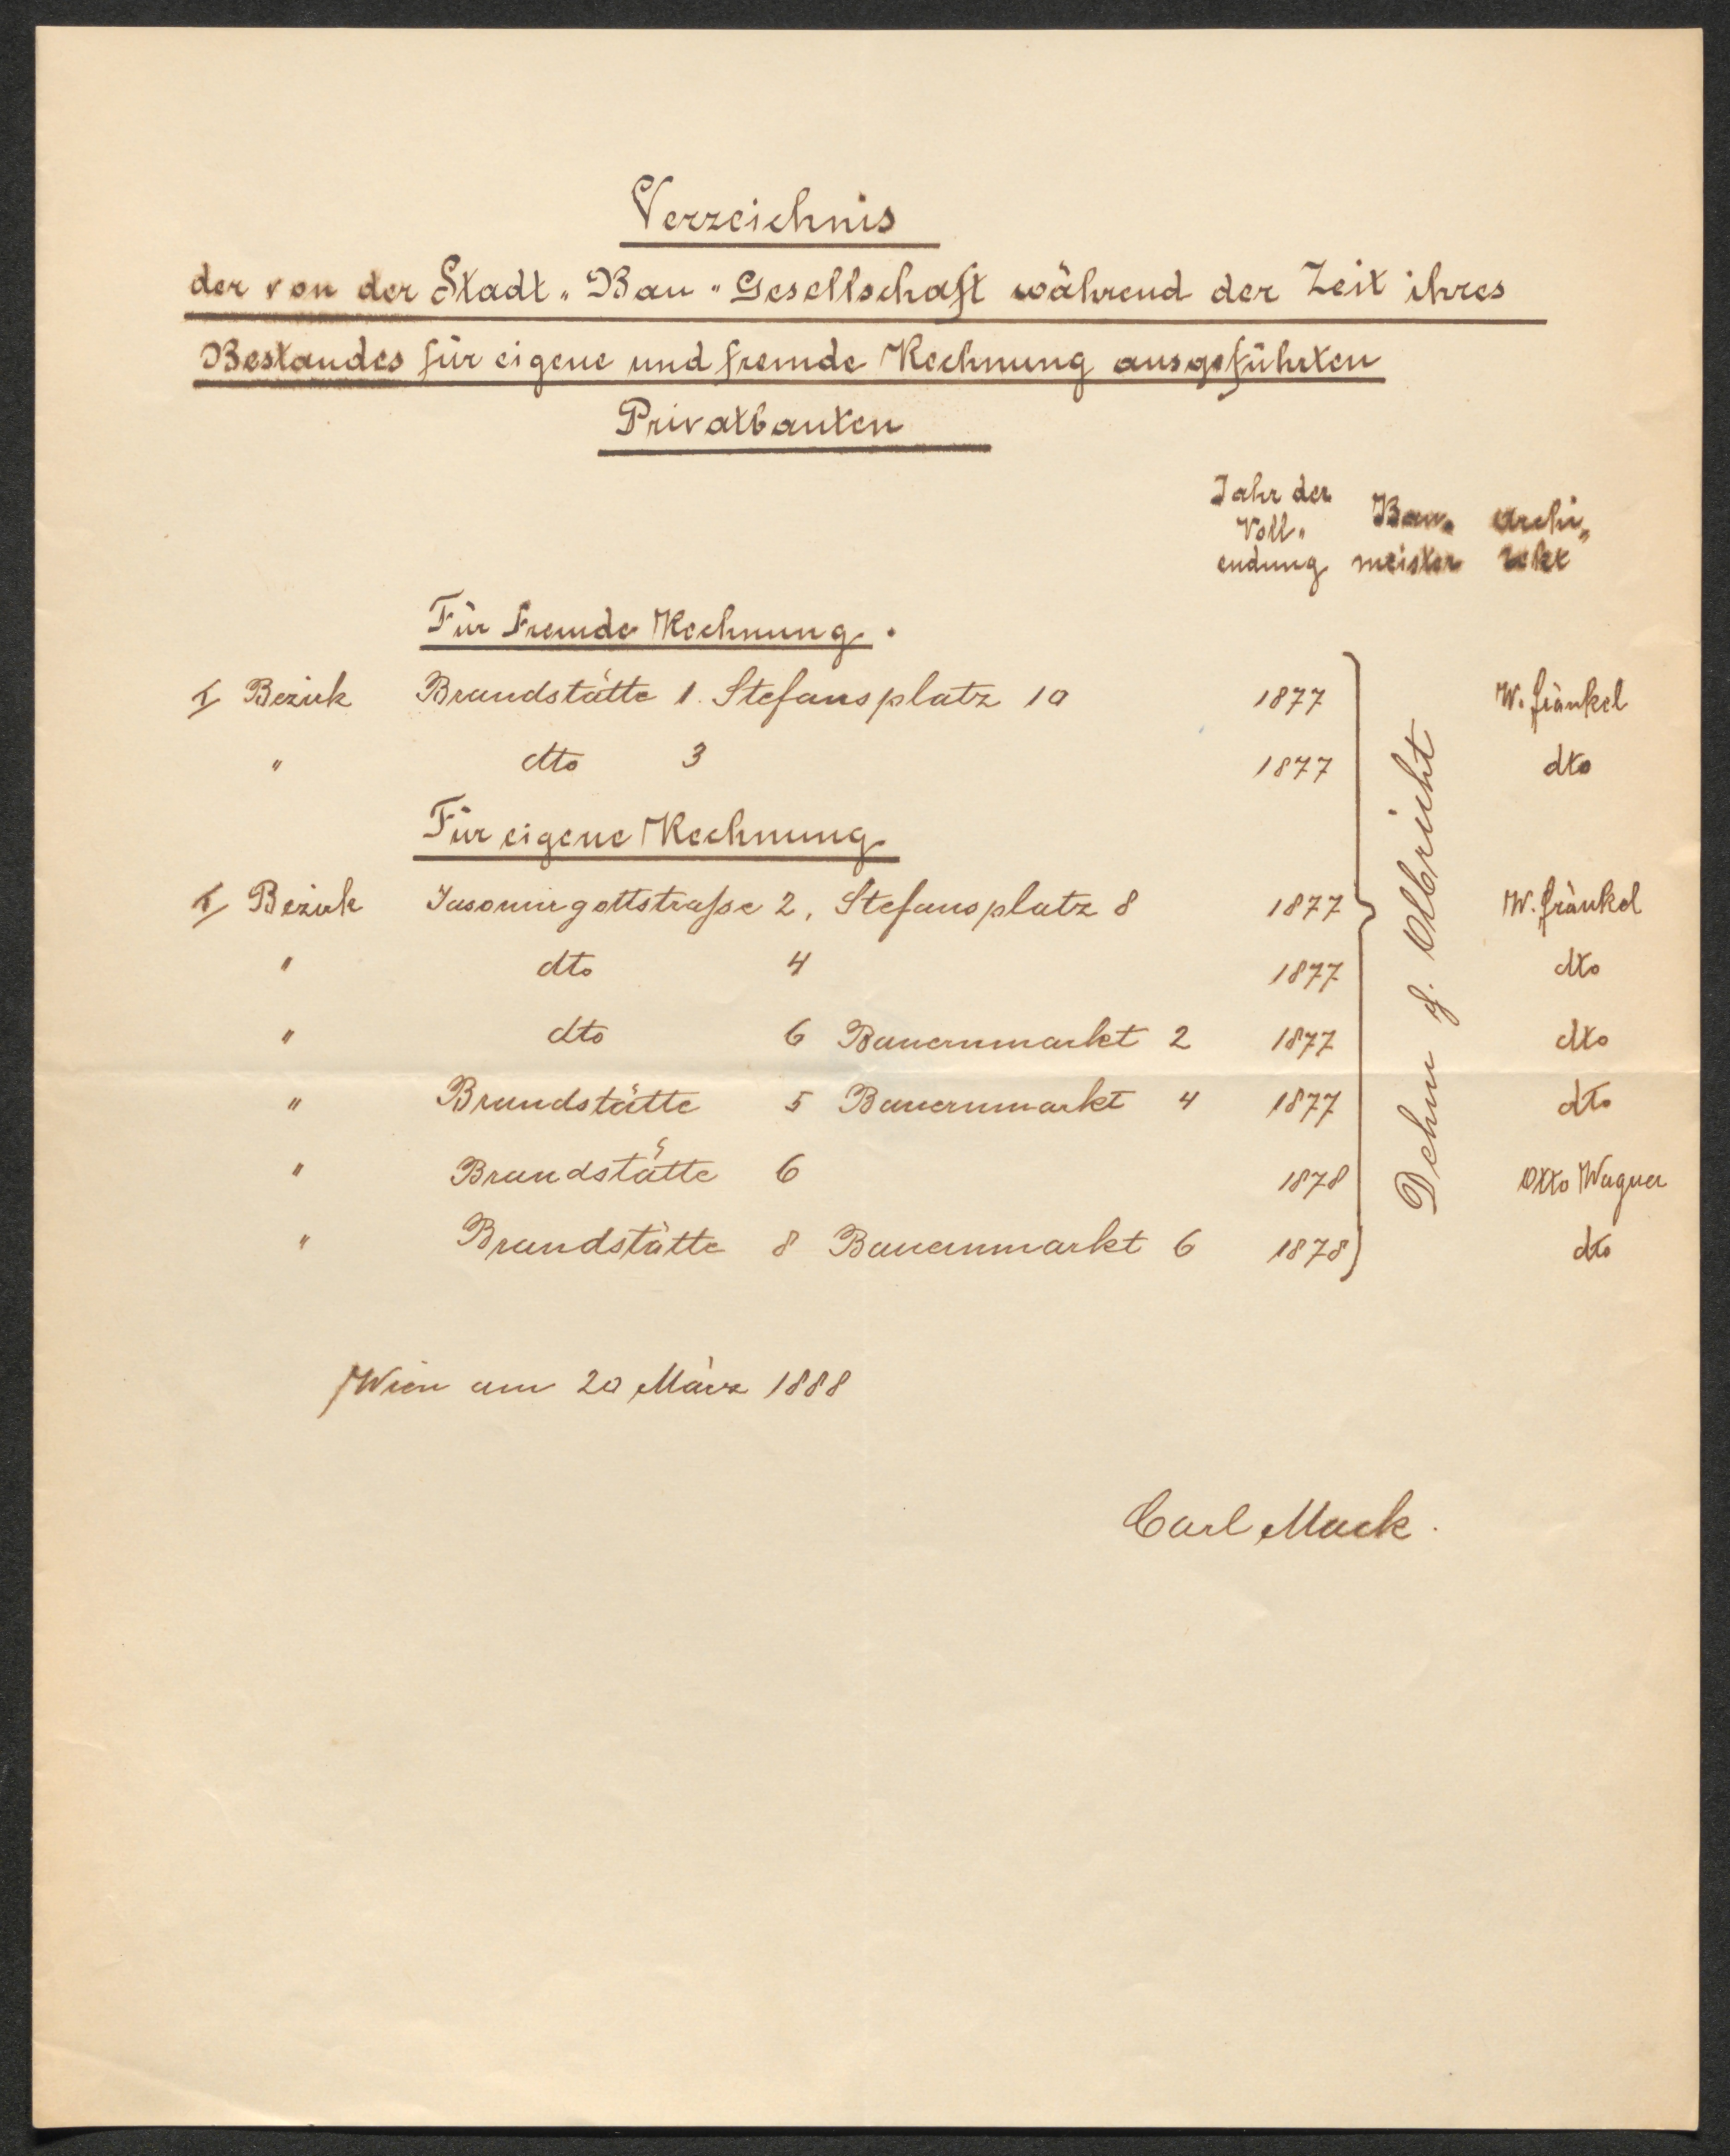 Verzeichnis
der von der Stadt„Bau„Gesellschaft während der Zeit ihres
Bestandes für eigene und fremde Rechnung ausgeführten
Privatbauten
Jahr der Voll„endung
Bau„meister
Archi„tekt
Für fremde Rechnung.
I/ Bezirk Brandstätte 1. Stefansplatz 10 1877 W. Fränkel
" dto 3 1877 dto
Für eigene Rechnung
I/ Bezirk Jasomirgottstraße 2, Stefansplatz 8 1877 W. Fränkel
" dto 4 1877 dto
" dto 6 Bauernmarkt 2 1877 dto
" Brandstätte 5 Bauernmarkt 4 1877 dto
" Brandstätte 6 1878 Otto Wagner
" Brandstätte 8 Bauernmarkt 6 1878 dto
Dehm & Olbricht
Wien am 20 März 1888
Carl Mack.